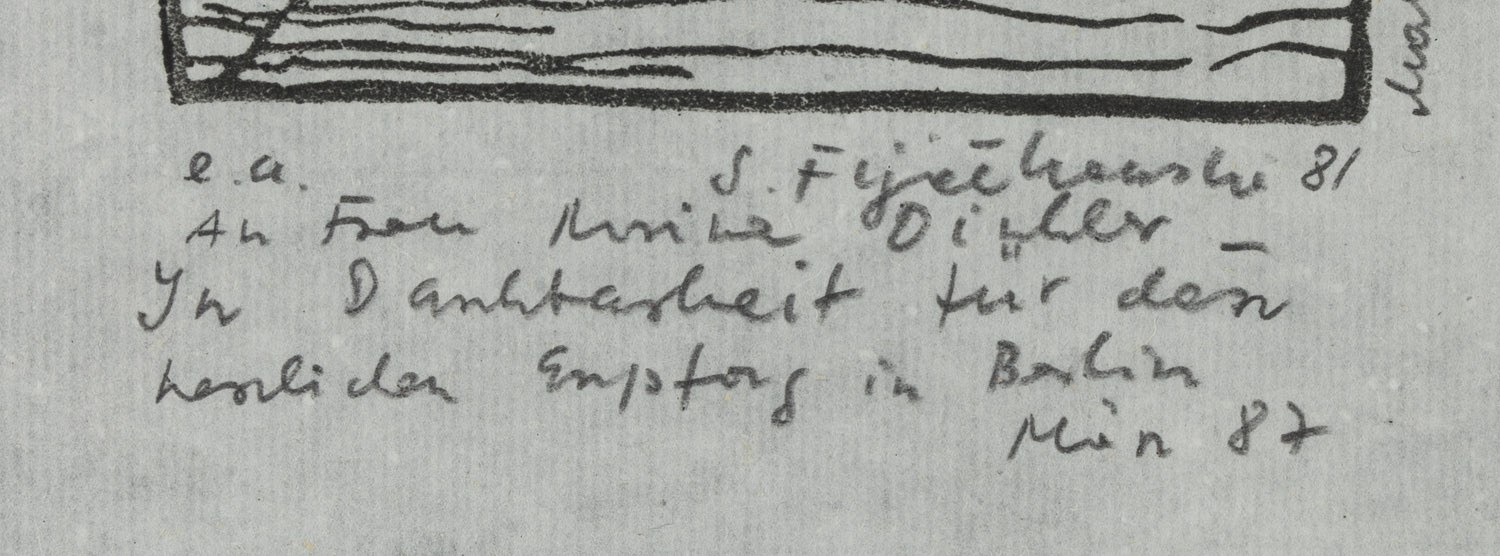 e.a. S. Fijałkowski 81
An Frau
In Dankbarkeit für den
herzlichen Empfang in Berlin
März 87